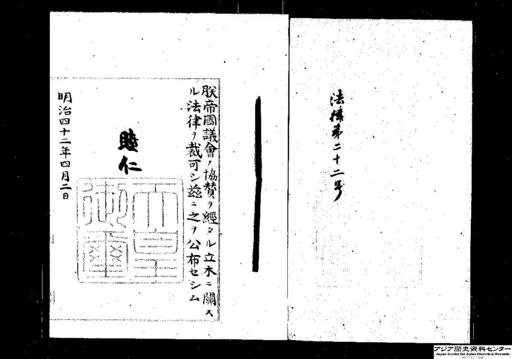 法律第二十二号
朕帝國議會ノ協賛ヲ經タル立木ニ關ス
ル法律ヲ裁可シ茲ニ之ヲ公布セシム
睦仁
天皇御璽
明治四十二年四月二日
アジア歴史資料センター
Japan Center for Asian Historical Records